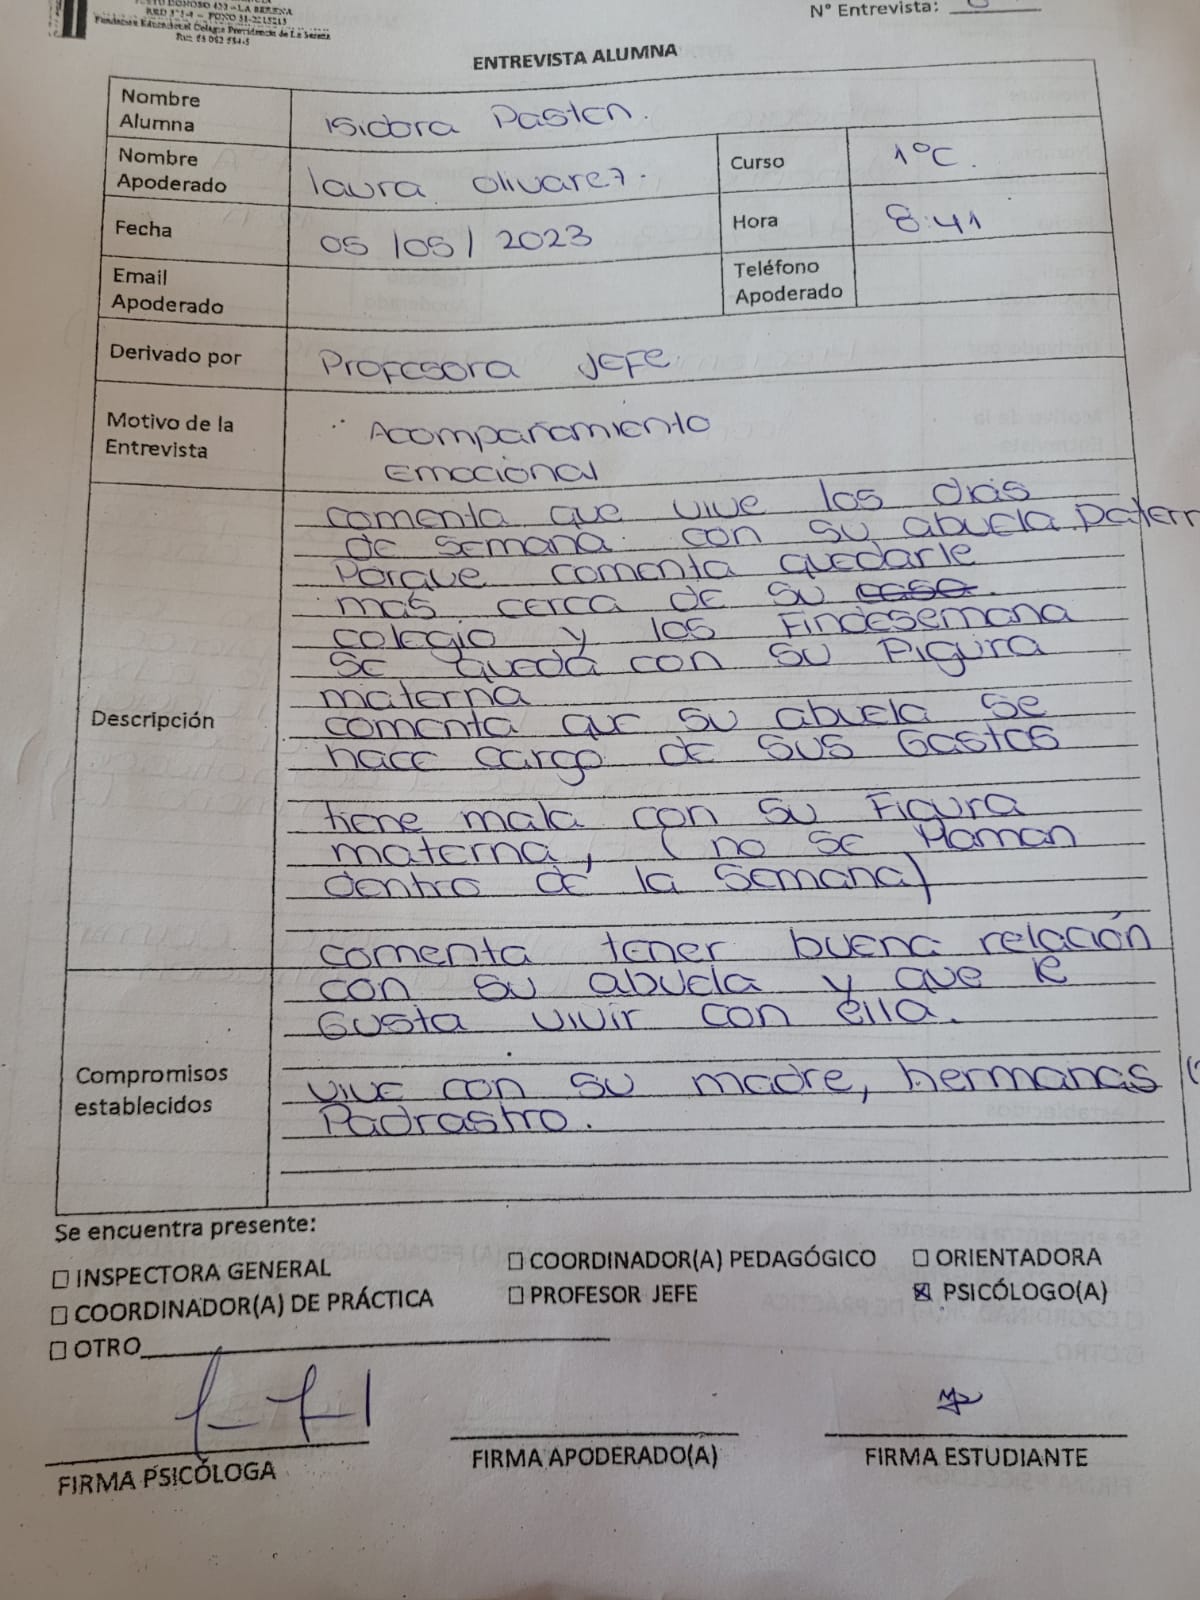 DONOSO 423 - LA SERENA
RBD - FONO 51-2215213
Fundación Educacional Colegio Providencia de La Serena
N° Entrevista:
ENTREVISTA ALUMNA
Nombre Alumna Isidora Pasten.
Nombre Apoderado laura olivarez. Curso 1°C.
Fecha 05/05/2023 Hora 8:41
Email Apoderado Teléfono Apoderado
Derivado por Profesora Jefe
Motivo de la Entrevista Acompañamiento
Emocional
Descripción
comenta que vive los dias
de semana con su abuela patern
Porque comenta quedarle
mas cerca de su casa
colegio y los Findesemana
se queda con su Figura
materna
comenta que su abuela se
hace cargo de sus Gastos
tiene mala con su Figura
materna, (no se llaman
dentro de la semana)
comenta tener buena relación
con su abuela y que le
Gusta vivir con ella.
Compromisos establecidos
vive con su madre, hermanas
Padrastro.
Se encuentra presente:
☐ INSPECTORA GENERAL ☐ COORDINADOR(A) PEDAGÓGICO ☐ ORIENTADORA
☐ COORDINADOR(A) DE PRÁCTICA ☐ PROFESOR JEFE ☒ PSICÓLOGO(A)
☐ OTRO
FIRMA PSICÓLOGA FIRMA APODERADO(A) FIRMA ESTUDIANTE